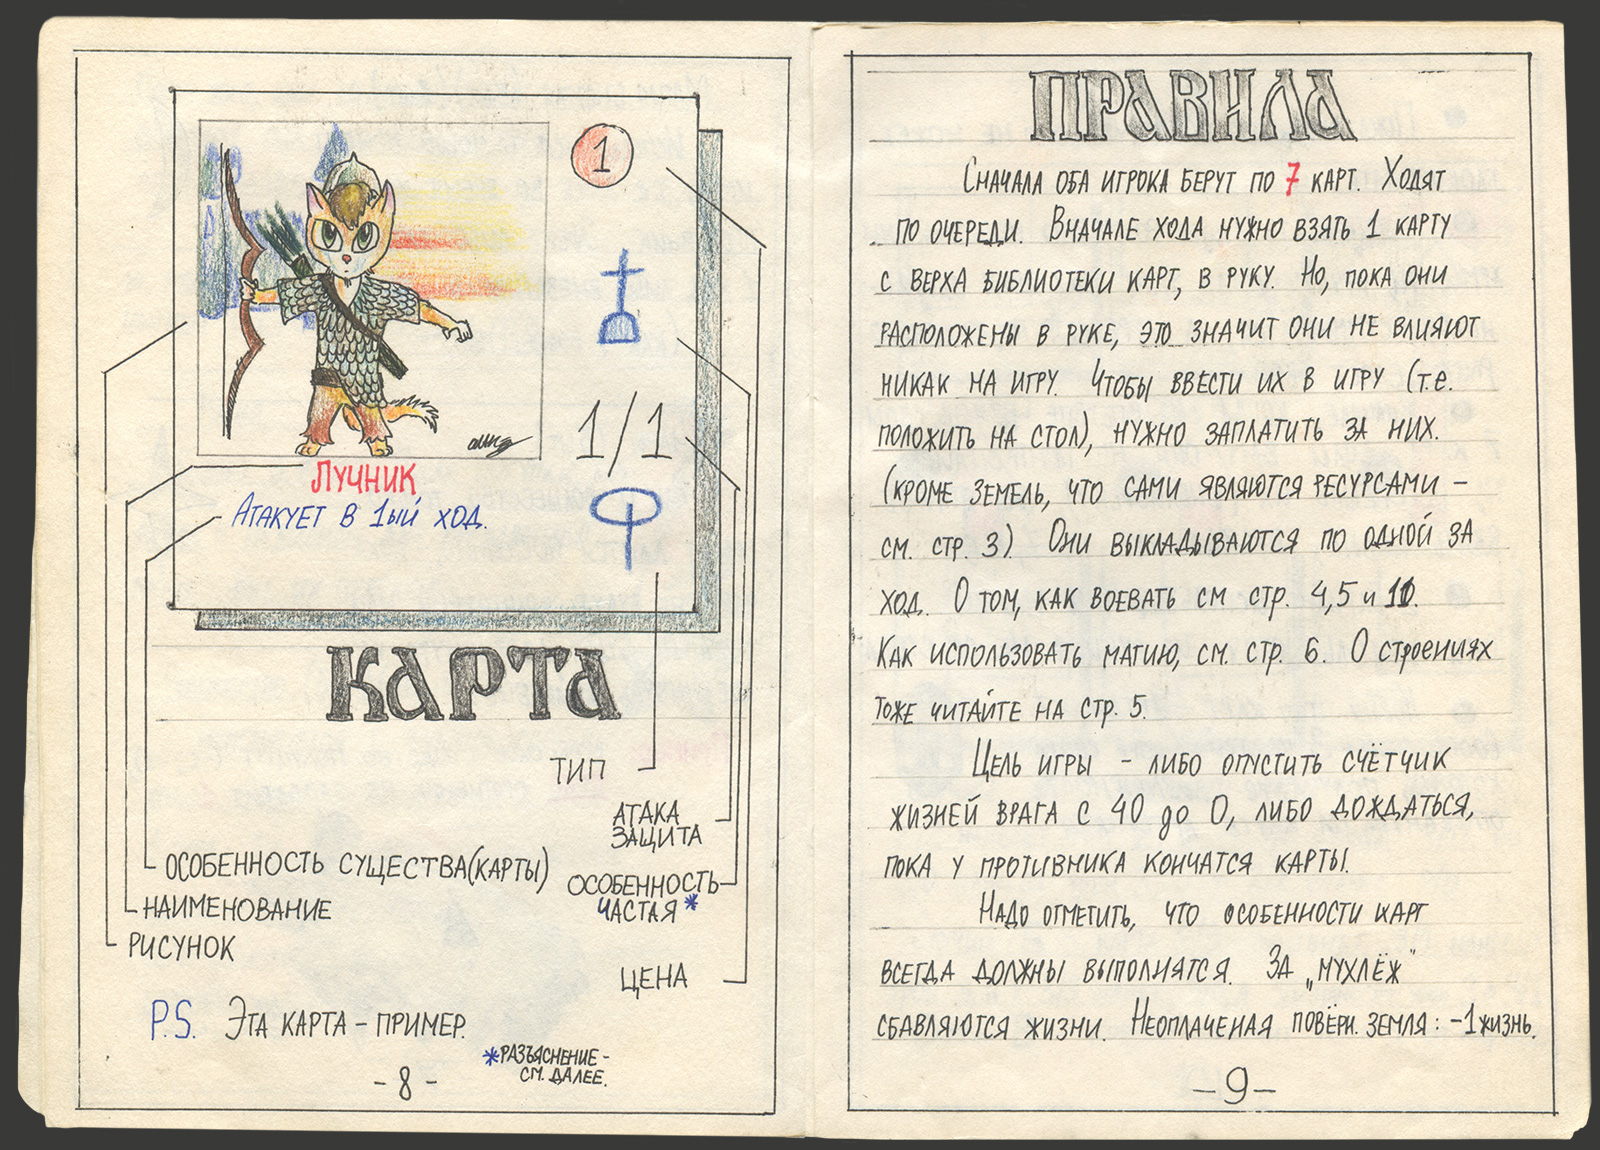 1
1/1
Лучник
Атакует в 1ый ход.
Карта
Тип
Атака
Защита
Особенность существа(карты)
Особенность
частая*
Наименование
Рисунок
Цена
P.S. Эта карта – пример.
*Разъяснение –
см. далее.
- 8 -
Правила
Сначала оба игрока берут по 7 карт. Ходят
по очереди. Вначале хода нужно взять 1 карту
с верха библиотеки карт, в руку. Но, пока они
расположены в руке, это значит они не влияют
никак на игру. Чтобы ввести их в игру (т.е.
положить на стол), нужно заплатить за них.
(кроме земель, что сами являются ресурсами –
см. стр. 3). Они выкладываются по одной за
ход. О том, как воевать см стр. 4,5 и 11.
Как использовать магию, см. стр. 6. О строениях
тоже читайте на стр. 5.
Цель игры – либо опустить счётчик
жизней врага с 40 до 0, либо дождаться,
пока у противника кончатся карты.
Надо отметить, что особенности карт
всегда должны выполнятся. За „мухлёж"
сбавляются жизни. Неоплаченая повёрн. земля: -1 жизнь.
- 9 -